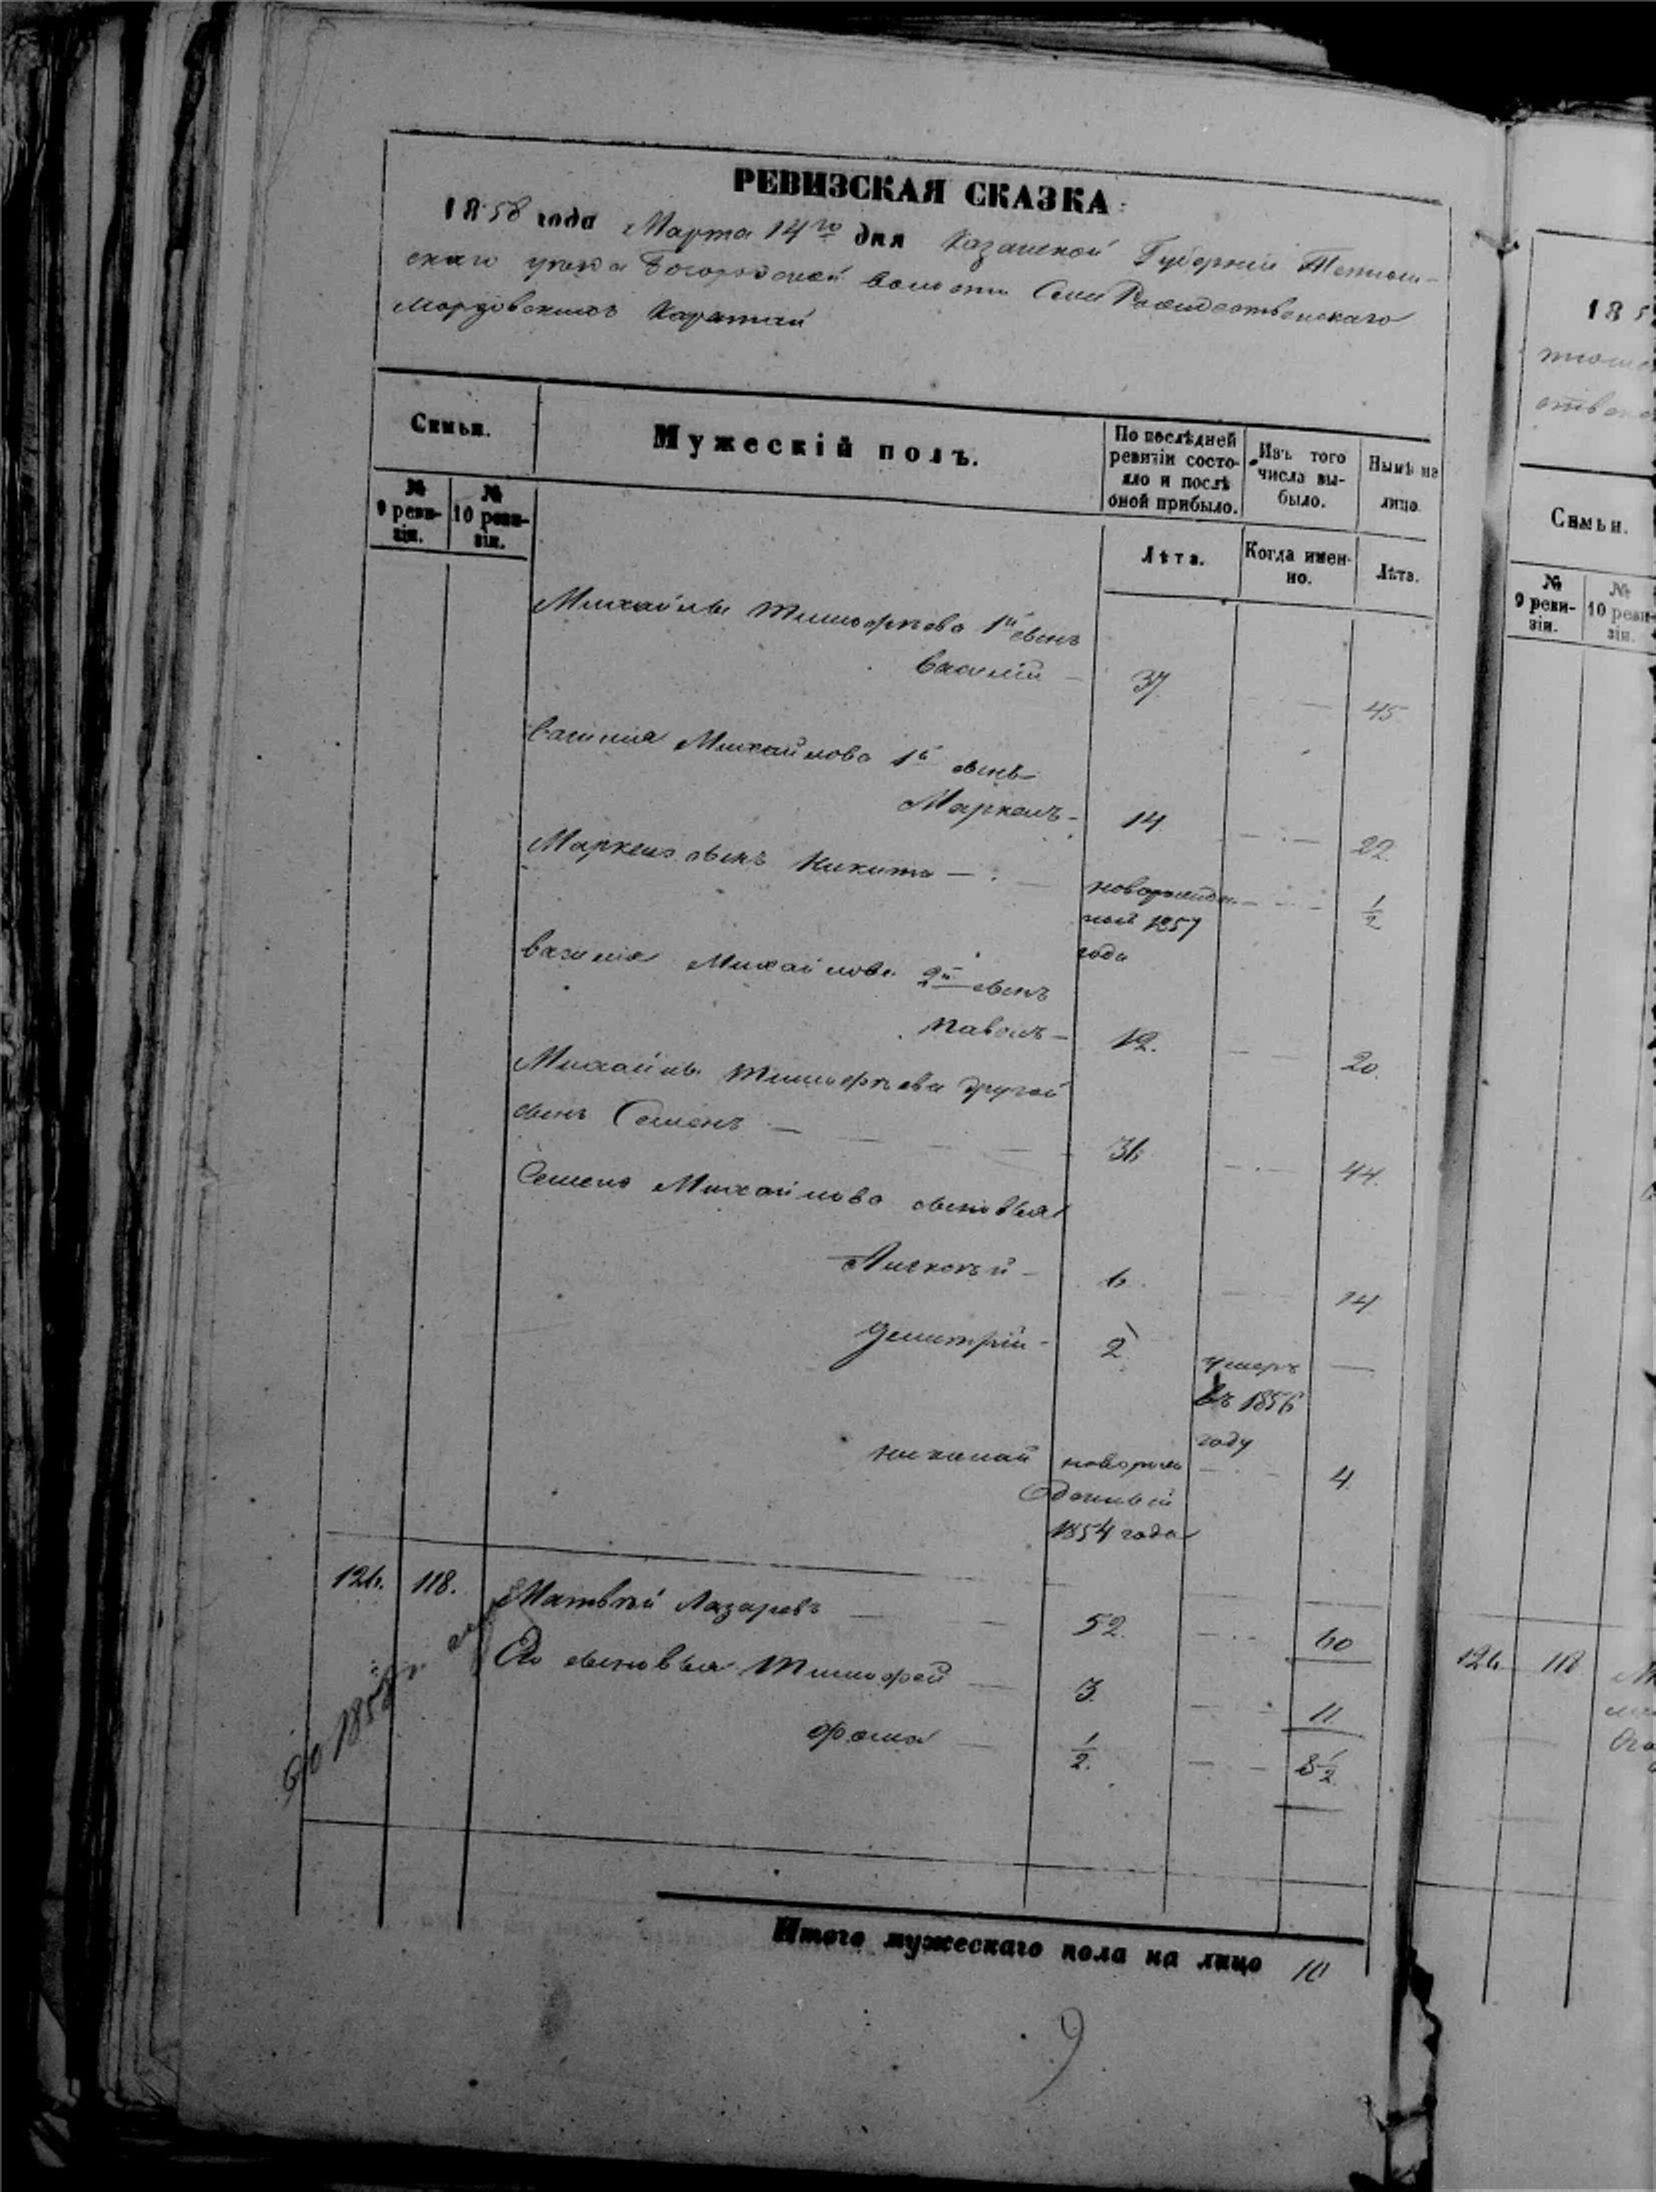 РЕВИЗСКАЯ СКАЗКА
1858 года Марта 14го дня Казанской Губернии Тетюш-
скаго уезда Богородской волости Села Рождественскаго
Мордовскихъ Каратай
Семьи.
Мужескій полъ.
По послѣдней ревизіи состо-яло и послѣ оной прибыло.
Изъ того числа вы-было.
Нынѣ на лицо.
№ 9 реви-зіи.
№ 10 реви-зіи.
Лѣта.
Когда имен-но.
Лѣта.
Михайлы Тимофѣева 1й сынъ
Василій — 37 — 45
Василія Михайлова 1й сынъ
Маркелъ — 14 — 22
Маркела сынъ Никита — новорожден- — 1/2
ный 1857
года
Василія Михайлова 2й сынъ
Павелъ — 12. — 20.
Михайлы Тимофѣева другой
сынъ Семенъ — 36 — 44.
Семена Михайлова сыновья
Алексѣй — 6. — 14
Димитрій — 2 умеръ —
въ 1856
году
Николай новорож — 4.
денный
1854 года
126. 118. Матвѣй Лазаревъ — 52. — 60
Его сыновья Тимофей — 3. — 11
Фома — 1/2. — 8 1/2.
Итого мужескаго пола на лицо 10
9
185
Семьи.
№ 9 реви-зіи.
№ 10 реви-зіи.
126 118